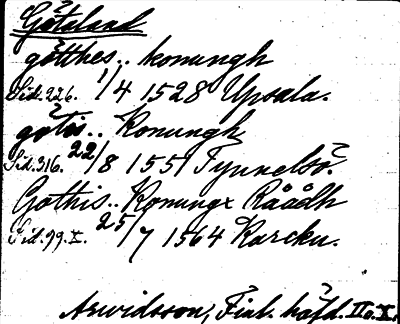 Götaland
götthes.. konungh
Sid. 226. 1/4 1528 Upsala.
götis.. Konungh
Sid. 316. 22/8 1551 Tynnelsö.
Gothis.. Konungx Råådh
Sid. 99. I. 25/7 1564 Karcku.
Arwidsson, Finl. häfd. II o. I.